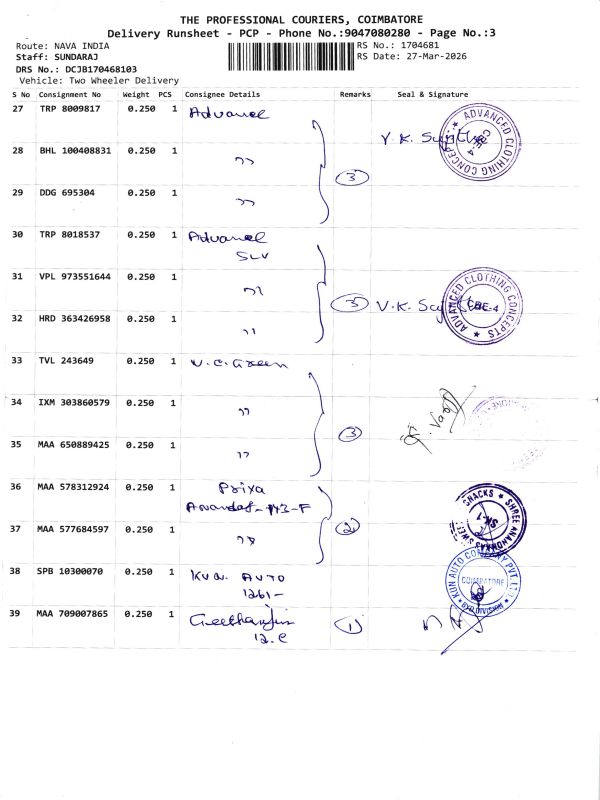 THE PROFESSIONAL COURIERS, COIMBATORE
Delivery Runsheet - PCP - Phone No.:9047080280 - Page No.:3
Route: NAVA INDIA
RS No.: 1704681
Staff: SUNDARAJ
RS Date: 27-Mar-2026
DRS No.: DCJB170468103
Vehicle: Two Wheeler Delivery
S No Consignment No Weight PCS Consignee Details Remarks Seal & Signature
27 TRP 8009817 0.250 1
28 BHL 100408831 0.250 1 ,,
3
29 DDG 695304 0.250 1 ,,
ADVANCED CLOTHING CONCEPTS
30 TRP 8018537 0.250 1
SLV
31 VPL 973551644 0.250 1 ,,
3 V.K.
32 HRD 363426958 0.250 1 ,,
ADVANCED CLOTHING CONCEPTS
CBE-4
33 TVL 243649 0.250 1 Green
34 IXM 303860579 0.250 1 ,,
3
35 MAA 650889425 0.250 1 ,,
36 MAA 578312924 0.250 1 Prixa
37 MAA 577684597 0.250 1 ,,
2
38 SPB 10300070 0.250 1 AUTO
1261-
KUN AUTO COMPANY PVT. LTD.
COIMBATORE
39 MAA 709007865 0.250 1
12.C
1